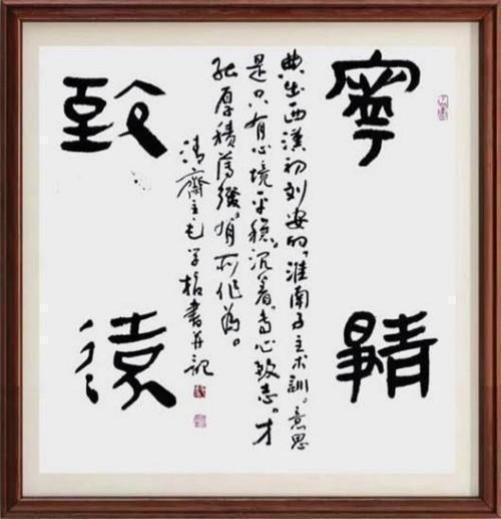 寧靜
致遠
典出西漢初刘安的“淮南子主术訓。意思
是只有心境平穩。沉着、专心致志。才
能厚積薄發，有所作為。
清齋主毛学書并記